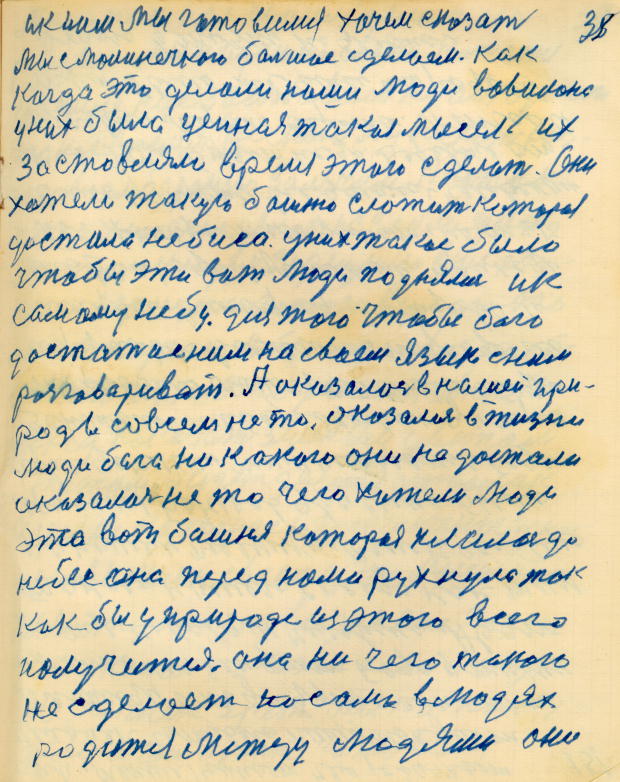 ик ним мы готовимся хочем сказат 38
мы с молинечкого большое сделоем. Как
Когда это делоли наши люди вовилона
у них была ценная такая мысель их
Застовляли время этого сделат. Они
хотели такую башню сложит которая
достала небиса. у них такое было
чтобы эти вот люди подняли ик
самому небу. для того чтобы бога
достат и сним на своем языке сним
розговариват. А оказалося в нашей при-
роде совсем не то, оказалося в жизни
люди бога ни какого они не достали
оказалося не то чего хотели люди
эта вот башня которая
небес она перед нами рухнула так
как бы у природе из этого всего
получится. она ни чего такого
не сделает по сама в людях
родится между людями они